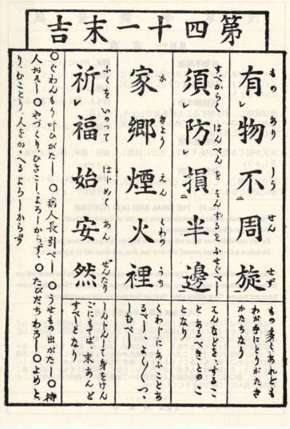 第四十一末吉
有物不周旋
もの あり しう せん せず
もの多くあれども
わが手にとりがたき
かたちなり
須防損半邊
すべからく はんぺんを そんするをふせぐべし
そんなどを、するこ
とあるべきとのこ
となり
家郷煙火裡
か きょう えん くわの うち
くわじにあふことあ
るべし、よく〳〵つゝ
しむべし
祈福始安然
ふくを いのって はじめて あん ぜんたり
しんじんして身をけん
ごにもてば、末あんど
すべしとなり
○ぐわんもう叶ひがたし○病人長引べし○うせもの出がたし○待
人○やづくり、ひっこし、よろしからず、○たびだちわろし○よめと
り、むことり、人をかゝへるよろしからず